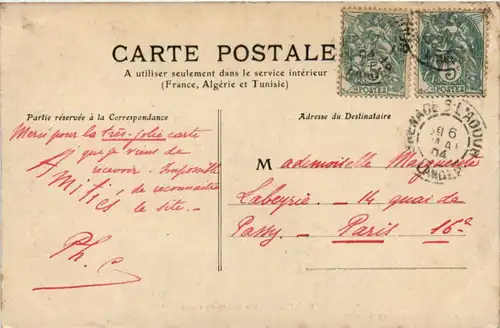 CARTE POSTALE
A utiliser seulement dans le service intérieur
(France, Algérie et Tunisie)
Partie réservée à la Correspondance
Adresse du Destinataire
Merci pour la très-jolie carte
que je viens de
recevoir. Impossible
de reconnaître
le site.
Amitiés
Ph.
Mademoiselle Marguerite
Labeyrie. 14 quai de
Passy. Paris 16e
POSTES
POSTES
5
GRENADE-S-L'ADOUR
6
MAI
04
LANDES